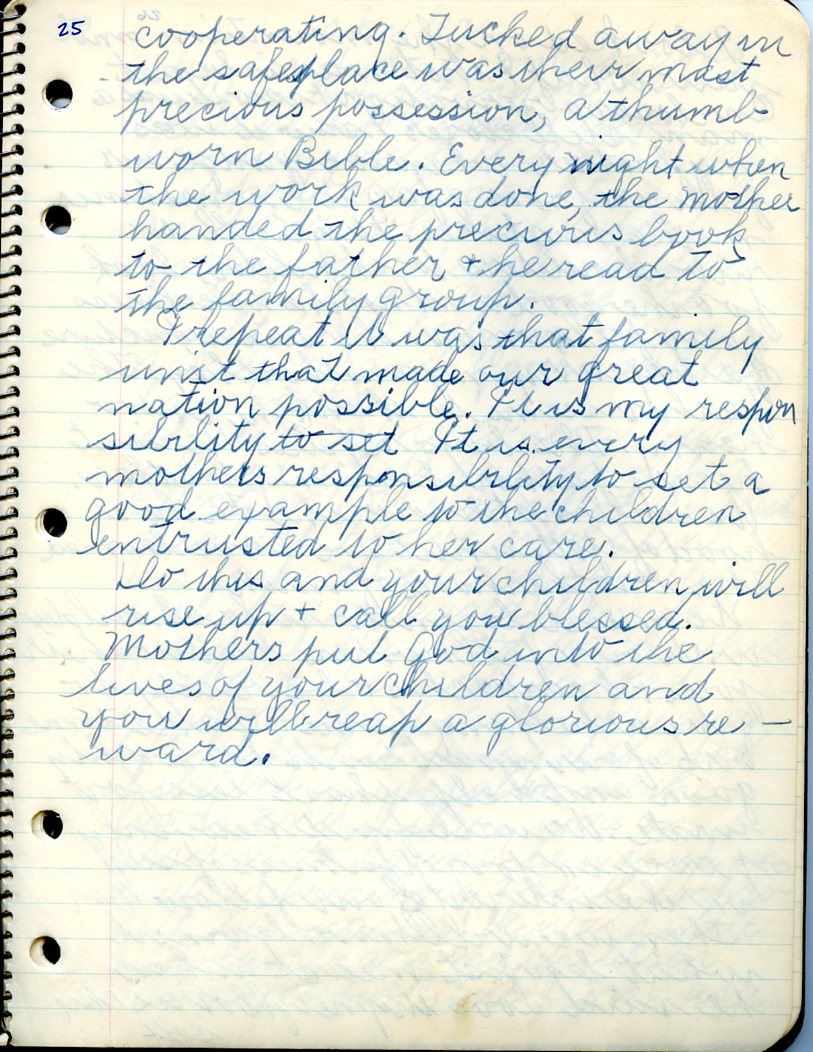 25
cooperating. Tucked away in
the safest place was their most
precious possession, a thumb-
worn Bible. Every night when
the work was done, the mother
handed the precious book
to the father + he read to
the family group.
I repeat it was that family
unit that made our great
nation possible. It is my respon
sibility to set It is every
mothers responsibility to set a
good example to the children
entrusted to her care.
Do this and your children will
rise up + call you blessed.
Mothers put God into the
lives of your children and
you will reap a glorious re-
ward.